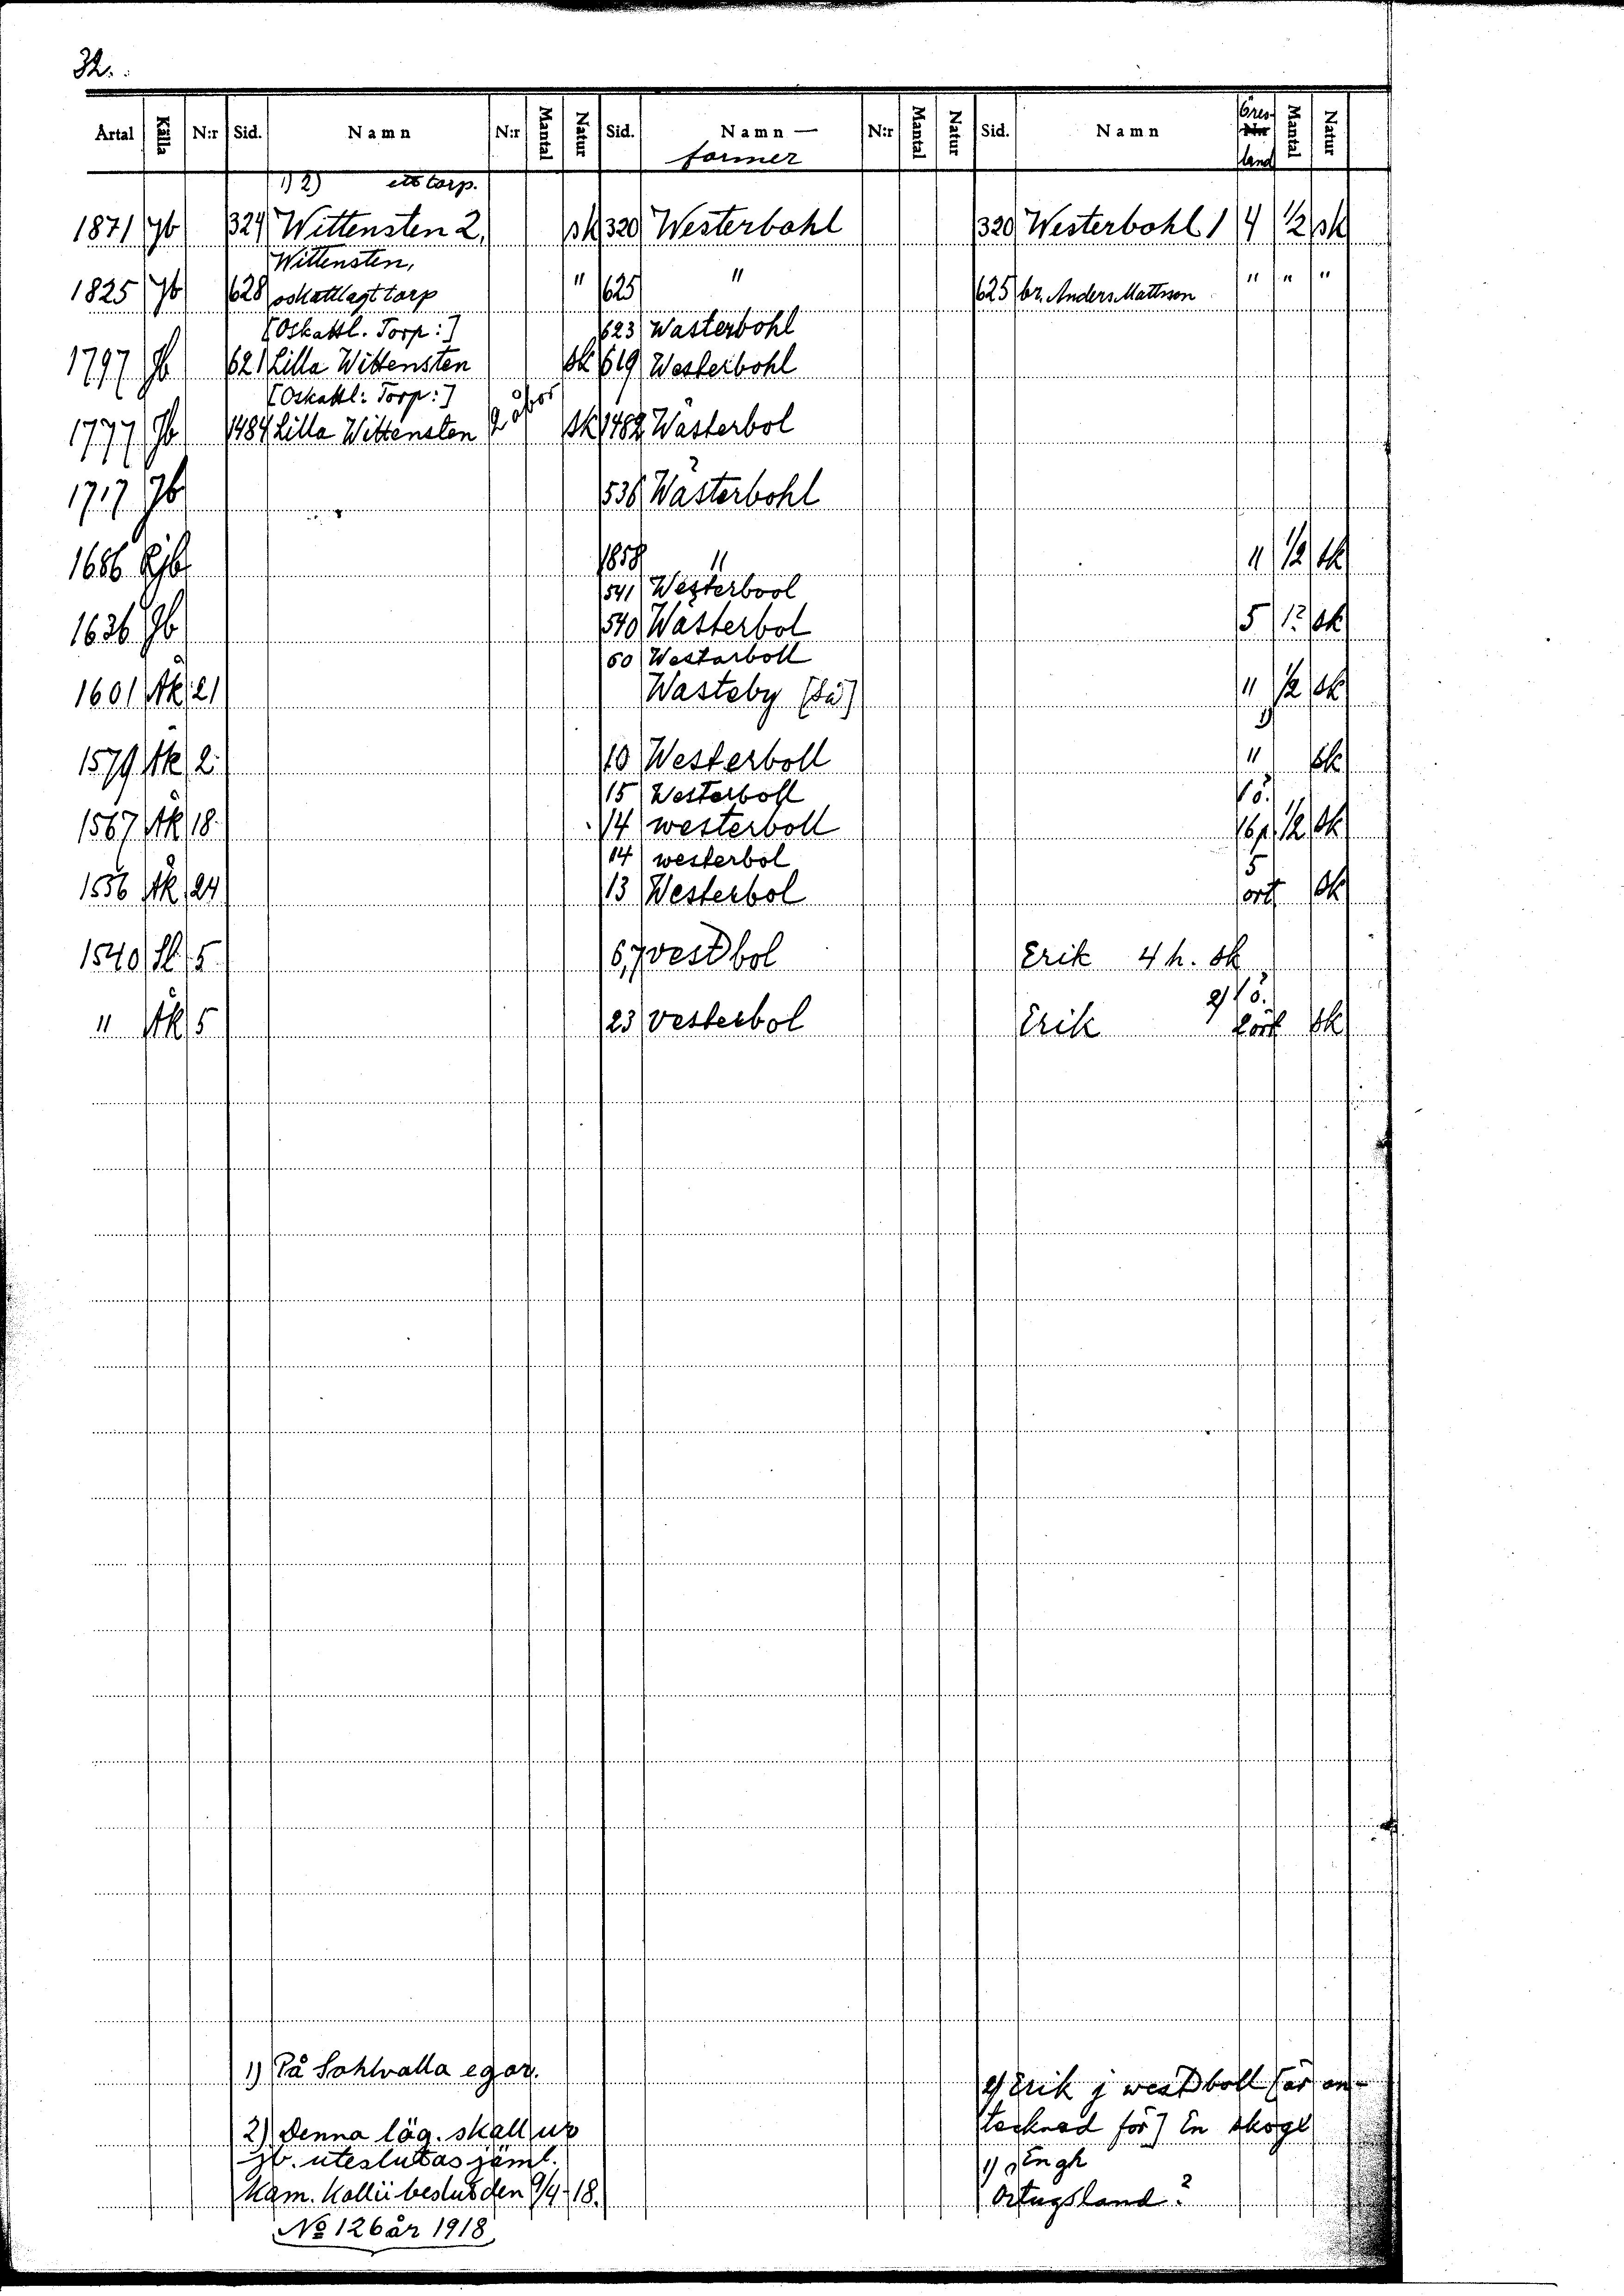 32.
Årtal Källa N:r Sid. Namn N:r Mantal Natur Sid. Namn — former N:r Mantal Natur Sid. Namn Öres-land Mantal Natur
1) 2) ett torp.
1871 Jb 324 Wittensten 2, sk 320 Westerbohl 320 Westerbohl 1 4 1/2 sk
Wittensten,
1825 Jb 628 oskattlagt torp " 625 " 625 br. Anders Mattsson " " "
[Oskattl. Torp:] 623 Wasterbohl
1797 Jb 621 Lilla Wittensten sk 619 Westerbohl
[Oskattl: Torp:]
1777 Jb 1484 Lilla Wittensten 2 åbor sk 1482 Wästerbol
1717 Jb 536 Wästerbohl
1686 Rjb 1858 " " 1/2 sk
541 Westerbool
1636 Jb 540 Wästerbol 5 1? sk
60 Westarboll
1601 Äk 21 Wasteby [så] " 1/2 sk
1)
1579 Äk 2 10 Westerboll " sk
15 Westerboll 1 ö.
1567 Äk 18 14 westerboll 16 p. 1/2 sk
14 westerbol 5
1556 Åk 24 13 Westerbol ort sk
1540 Sl 5 6,7 vestbol Erik 4 h. sk
2) 1 ö.
" Åk 5 23 vesterbol Erik 2 ört sk
1) På Sahlvalla egor.
2) Denna läg. skall ur
jb. uteslutas jäml.
Kam. Kollii beslut den 9/4-18.
No 126 år 1918
2) Erik j westboll [är an-
tecknad för] En skogl
1) Engh
Örtugsland?